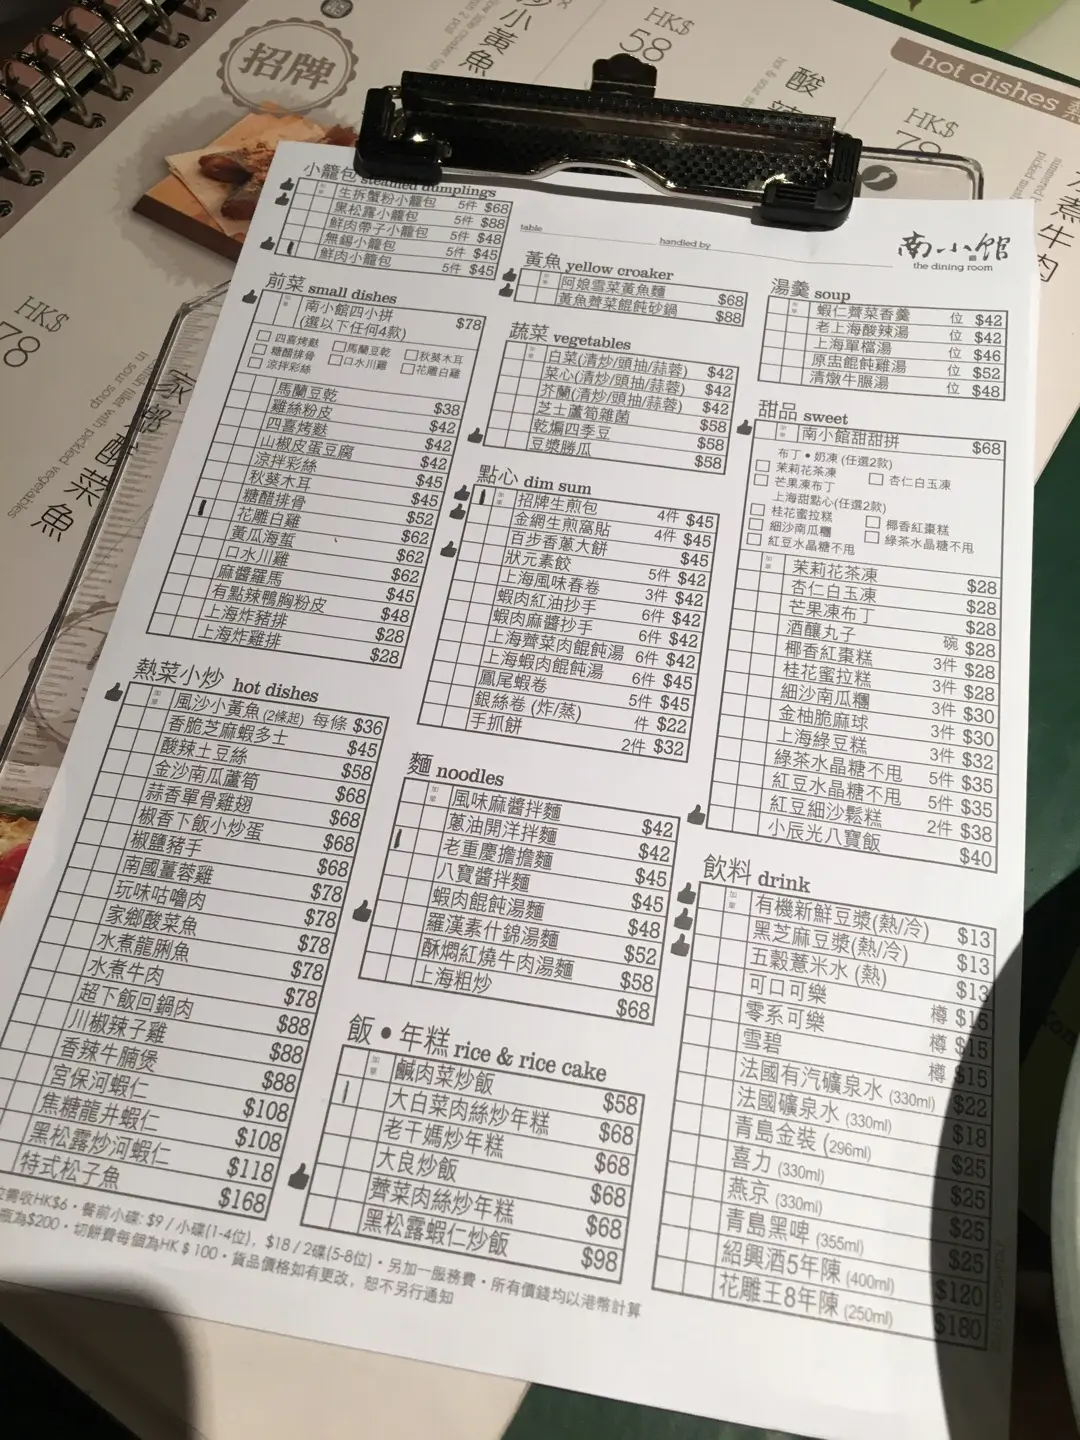 招牌
小黃魚
HK$
58
酸
hot dishes
HK$
水煮牛肉
HK$
78
in sour soup
fish fillet with pickled vegetables
家鄉酸菜魚
table
handled by
南小館
the dining room
小籠包 steamed dumplings
生拆蟹粉小籠包 5件 $68
黑松露小籠包 5件 $88
鮮肉帶子小籠包 5件 $48
無錫小籠包 5件 $45
鮮肉小籠包 5件 $45
前菜 small dishes
南小館四小拼
(選以下任何4款) $78
四喜烤麩 馬蘭豆乾 秋葵木耳
糖醋排骨 口水川雞 花雕白雞
涼拌彩絲
馬蘭豆乾 $38
雞絲粉皮 $42
四喜烤麩 $42
山椒皮蛋豆腐 $42
涼拌彩絲 $45
秋葵木耳 $45
糖醋排骨 $52
花雕白雞 $62
黃瓜海蜇 $62
口水川雞 $62
麻醬羅馬 $45
有點辣鴨胸粉皮 $48
上海炸豬排 $28
上海炸雞排 $28
熱菜小炒 hot dishes
風沙小黃魚 (2條起) 每條 $36
香脆芝麻蝦多士 $45
酸辣土豆絲 $58
金沙南瓜蘆筍 $68
蒜香單骨雞翅 $68
椒香下飯小炒蛋 $68
椒鹽豬手 $68
南國薑蓉雞 $78
玩味咕嚕肉 $78
家鄉酸菜魚 $78
水煮龍脷魚 $78
水煮牛肉 $78
超下飯回鍋肉 $88
川椒辣子雞 $88
香辣牛腩煲 $88
宮保河蝦仁 $108
焦糖龍井蝦仁 $108
黑松露炒河蝦仁 $118
特式松子魚 $168
黃魚 yellow croaker
阿娘雪菜黃魚麵 $68
黃魚薺菜餛飩砂鍋 $88
蔬菜 vegetables
白菜(清炒/頭抽/蒜蓉) $42
菜心(清炒/頭抽/蒜蓉) $42
芥蘭(清炒/頭抽/蒜蓉) $42
芝士蘆筍雜菌 $58
乾煸四季豆 $58
豆漿勝瓜 $58
點心 dim sum
招牌生煎包 4件 $45
金網生煎窩貼 4件 $45
百步香蔥大餅 $45
狀元素餃 5件 $42
上海風味春卷 3件 $42
蝦肉紅油抄手 6件 $42
蝦肉麻醬抄手 6件 $42
上海薺菜肉餛飩湯 6件 $42
上海蝦肉餛飩湯 6件 $45
鳳尾蝦卷 5件 $45
銀絲卷 (炸/蒸) 件 $22
手抓餅 2件 $32
麵 noodles
風味麻醬拌麵 $42
蔥油開洋拌麵 $42
老重慶擔擔麵 $45
八寶醬拌麵 $45
蝦肉餛飩湯麵 $48
羅漢素什錦湯麵 $52
酥燜紅燒牛肉湯麵 $58
上海粗炒 $68
飯 • 年糕 rice & rice cake
鹹肉菜炒飯 $58
大白菜肉絲炒年糕 $68
老干媽炒年糕 $68
大良炒飯 $68
薺菜肉絲炒年糕 $68
黑松露蝦仁炒飯 $98
湯羹 soup
蝦仁薺菜香羹 位 $42
老上海酸辣湯 位 $42
上海單檔湯 位 $46
原盅餛飩雞湯 位 $52
清燉牛脤湯 位 $48
甜品 sweet
南小館甜甜拼 $68
布丁 • 奶凍 (任選2款)
茉莉花茶凍 杏仁白玉凍
芒果凍布丁
上海甜點心(任選2款)
桂花蜜拉糕 椰香紅棗糕
細沙南瓜糰 綠茶水晶糖不甩
紅豆水晶糖不甩
茉莉花茶凍 $28
杏仁白玉凍 $28
芒果凍布丁 $28
酒釀丸子 碗 $28
椰香紅棗糕 3件 $28
桂花蜜拉糕 3件 $28
細沙南瓜糰 3件 $30
金柚脆麻球 3件 $30
上海綠豆糕 3件 $32
綠茶水晶糖不甩 5件 $35
紅豆水晶糖不甩 5件 $35
紅豆細沙鬆糕 2件 $38
小辰光八寶飯 $40
飲料 drink
有機新鮮豆漿(熱/冷) $13
黑芝麻豆漿(熱/冷) $13
五穀薏米水 (熱) $13
可口可樂 樽 $15
零系可樂 樽 $15
雪碧 樽 $15
法國有汽礦泉水 (330ml) $22
法國礦泉水 (330ml) $18
青島金裝 (296ml) $25
喜力 (330ml) $25
燕京 (330ml) $25
青島黑啤 (355ml) $25
紹興酒5年陳 (400ml) $120
花雕王8年陳 (250ml) $180
需收HK$6 • 餐前小碟: $9 / 小碟(1-4位), $18 / 2碟(5-8位) • 另加一服務費 • 所有價錢均以港幣計算
瓶為$200 • 切餅費每個為HK $ 100 • 貨品價格如有更改, 恕不另行通知